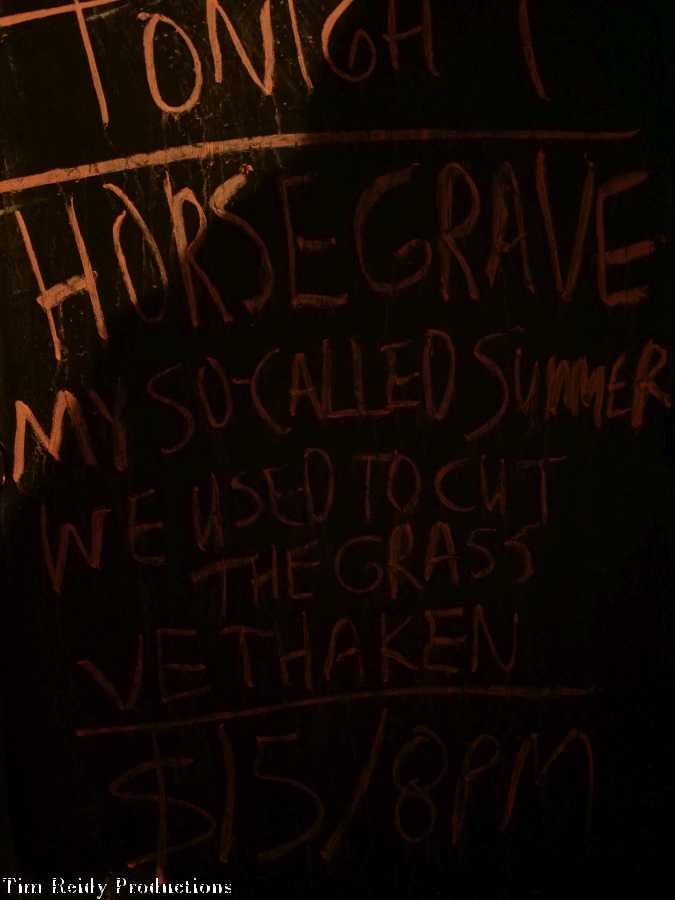 TONIGHT
HORSEGRAVE
MY SO-CALLED SUMMER
WE USED TO CUT
THE GRASS
VETHAKEN
$15/8PM
Tim Reidy Productions